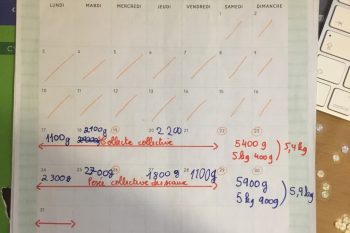 LUNDI MARDI MERCREDI JEUDI VENDREDI SAMEDI DIMANCHE
1 2
3 4 5 6 7 8 9
10 11 12 13 14 15 16
17 18 19 20 21 22 23
1100g 2100g 2200
Collecte collective
5400g
5kg 400g
5,4kg
24 25 26 27 28 29 30
2300g 2700g 1800g 1100g
Pesée collective des sceaux
5900g
5kg 900g
5,9kg
31